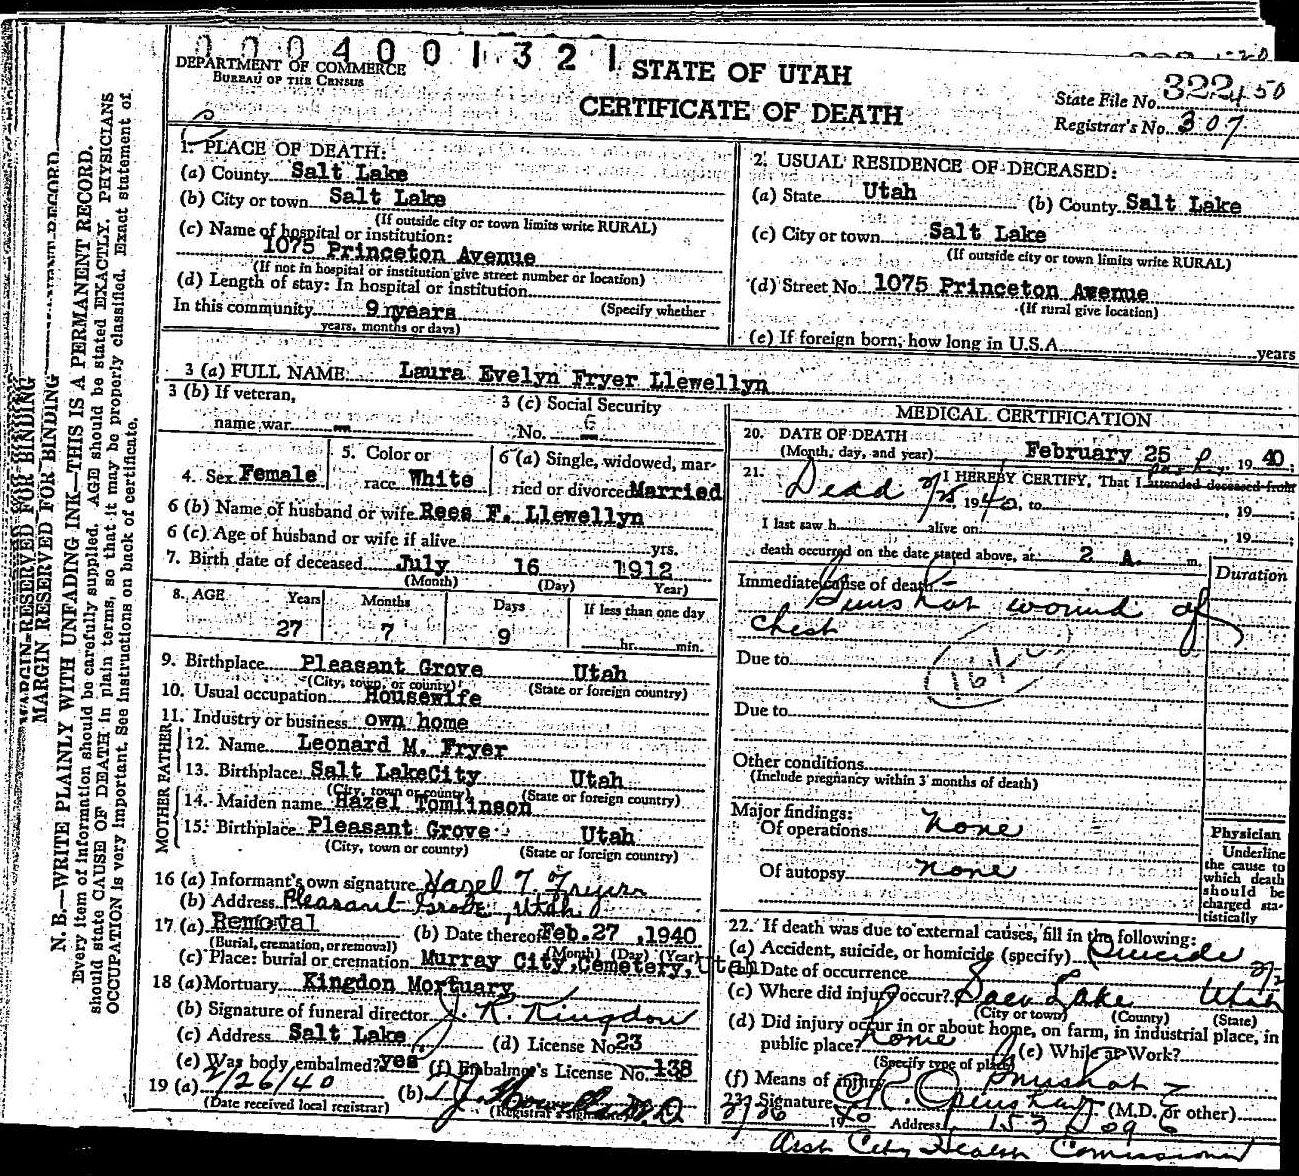 0 0 0 4 0 0 1 3 2 1
DEPARTMENT OF COMMERCE
BUREAU OF THE CENSUS
STATE OF UTAH
CERTIFICATE OF DEATH
State File No. 322450
Registrar's No. 307
MARGIN RESERVED FOR BINDING
MARGIN RESERVED FOR BINDING
N. B.—WRITE PLAINLY WITH UNFADING INK—THIS IS A PERMANENT RECORD.
Every item of information should be carefully supplied. AGE should be stated EXACTLY. PHYSICIANS
should state CAUSE OF DEATH in plain terms, so that it may be properly classified. Exact statement of
OCCUPATION is very important. See instructions on back of certificate.
1. PLACE OF DEATH:
(a) County Salt Lake
(b) City or town Salt Lake
(If outside city or town limits write RURAL)
(c) Name of hospital or institution:
1075 Princeton Avenue
(If not in hospital or institution give street number or location)
(d) Length of stay: In hospital or institution
In this community 9 years (Specify whether
years, months or days)
2. USUAL RESIDENCE OF DECEASED:
(a) State Utah (b) County Salt Lake
(c) City or town Salt Lake
(If outside city or town limits write RURAL)
(d) Street No. 1075 Princeton Avenue
(If rural give location)
(e) If foreign born, how long in U.S.A. years
3 (a) FULL NAME Laura Evelyn Fryer Llewellyn
3 (b) If veteran,
name war -
3 (c) Social Security
No. -
4. Sex Female
5. Color or
race White
6 (a) Single, widowed, mar-
ried or divorced Married
6 (b) Name of husband or wife Rees F. Llewellyn
6 (c) Age of husband or wife if alive yrs.
7. Birth date of deceased July 16 1912
(Month) (Day) Year)
8. AGE Years Months Days If less than one day
27 7 9 hr. min.
9. Birthplace Pleasant Grove Utah
(City, town, or county) (State or foreign country)
10. Usual occupation Housewife
11. Industry or business own home
FATHER
12. Name Leonard M. Fryer
13. Birthplace Salt LakeCity Utah
(City, town or county) (State or foreign country)
MOTHER
14. Maiden name Hazel Tomlinson
15. Birthplace Pleasant Grove Utah
(City, town or county) (State or foreign country)
16 (a) Informant's own signature Hazel T. Fryer
(b) Address Pleasant Grove, Utah
17 (a) Removal (b) Date thereof Feb.27 ,1940
(Burial, cremation, or removal) (Month) (Day) (Year)
(c) Place: burial or cremation Murray City,Cemetery,Utah
18 (a) Mortuary Kingdon Mortuary
(b) Signature of funeral director J. R. Kingdon
(c) Address Salt Lake (d) License No. 23
(e) Was body embalmed? yes (f) Embalmer's License No. 138
19 (a) 2/26/40 (b) M.D.
(Date received local registrar) (Registrar's signature)
MEDICAL CERTIFICATION
20. DATE OF DEATH
(Month, day, and year) February 25 19 40
21. I HEREBY CERTIFY, That I attended deceased from
Dead 2/25, 1940, to , 19 ;
I last saw h alive on , 19 ;
death occurred on the date stated above, at 2 A. m.
Duration
Immediate cause of death
Gunshot wound of
chest
Due to
Due to
Other conditions
(Include pregnancy within 3 months of death)
Major findings:
Of operations none
Of autopsy none
Physician
Underline
the cause to
which death
should be
charged sta-
tistically
22. If death was due to external causes, fill in the following:
(a) Accident, suicide, or homicide (specify) Suicide
(b) Date of occurrence
(c) Where did injury occur? Salt Lake Utah
(City or town) (County) (State)
(d) Did injury occur in or about home, on farm, in industrial place, in
public place? home (e) While at Work?
(Specify type of place)
(f) Means of injury Gunshot
23. Signature (M.D. or other)
2/26 1940 Address
Asst City Health Commissioner